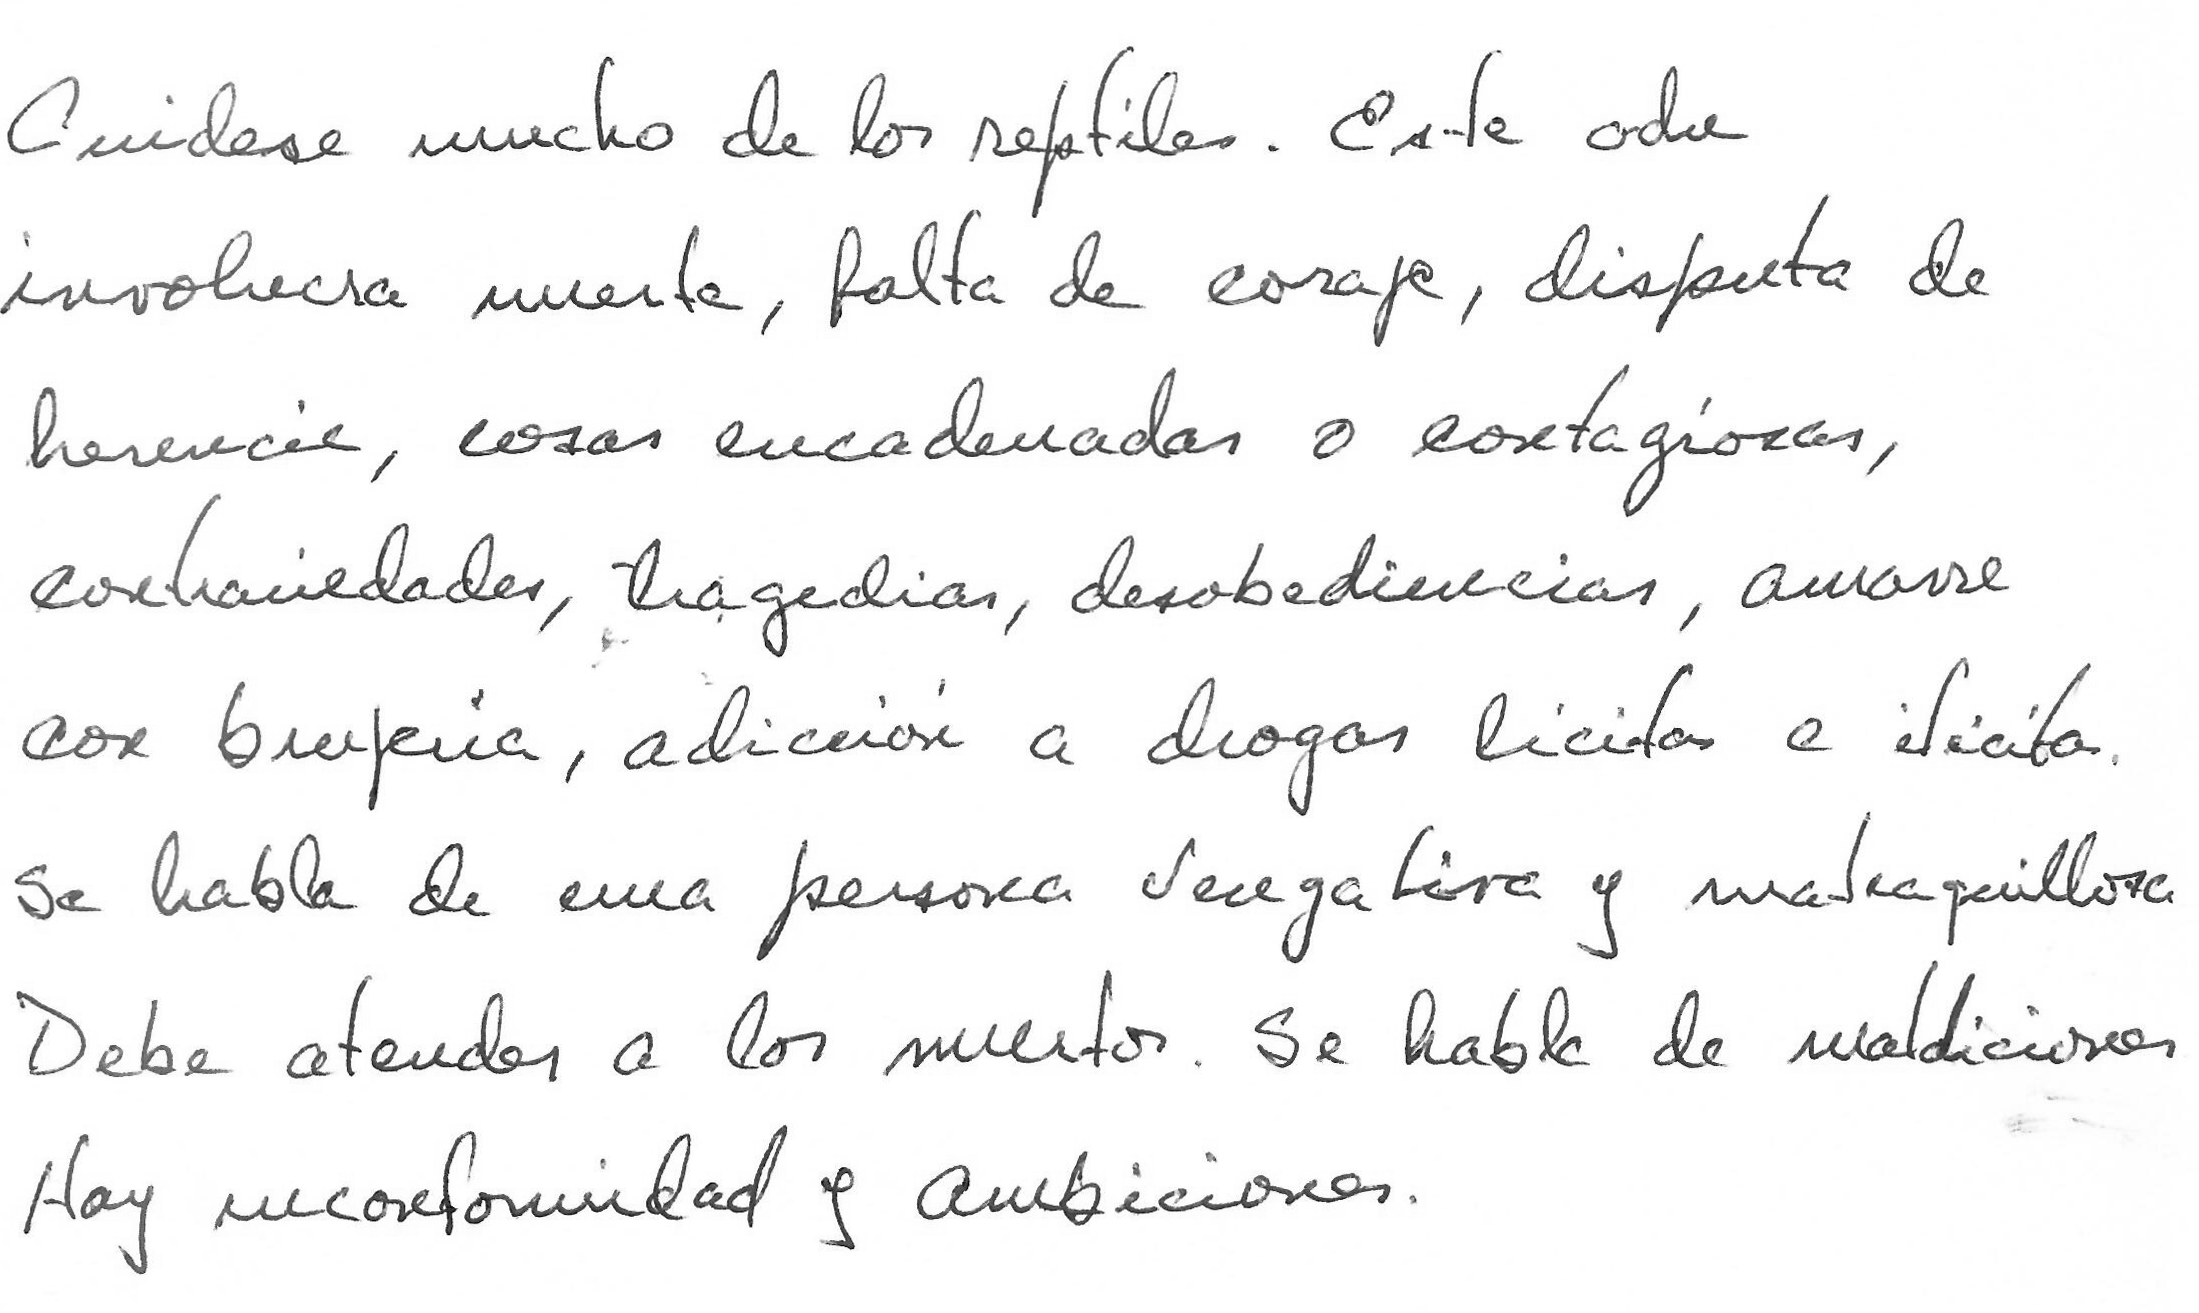 Cuidese mucho de los reptiles. Este odu
involucra muerte, falta de coraje, disputa de
herencia, cosas encadenadas o contagiosas,
contrariedades, tragedias, desobediencias, amarre
con brujería, adicción a drogas licitas e ilicitas.
Se habla de una persona vengativa y matraquillosa
Debe atender a los muertos. Se habla de maldiciones
Hay inconformidad y ambiciones.